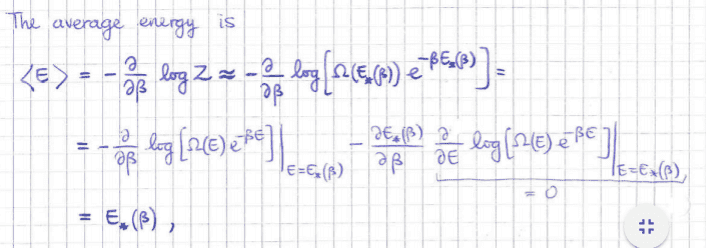 The average energy is
⟨E⟩ = - ∂/∂β log Z ≈ - ∂/∂β log [Ω(E_*(β)) e^{-βE_*(β)}] =
= - ∂/∂β log [Ω(E) e^{-βE}] |_{E=E_*(β)} - ∂E_*(β)/∂β ∂/∂E log [Ω(E) e^{-βE}] |_{E=E_*(β)},
= 0
= E_*(β) ,